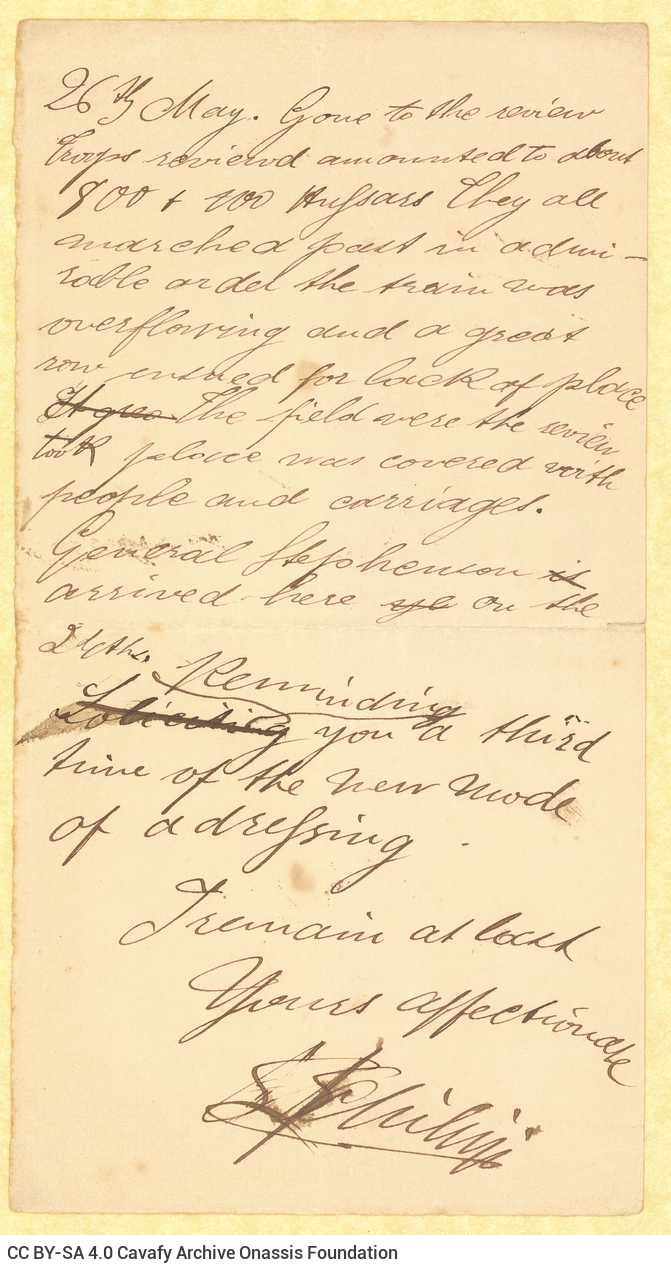 26th May. Gone to the review
troops reviewd amounted to about
800 + 100 Hussars They all
marched past in admi-
rable order the train was
overflowing and a great
row ensued for lack of place
The field were the review
took place was covered with
people and carriages.
General Stephenson it
arrived here ye on the
24th. Reminding
Soliciting you a third
time of the new mode
of adressing.
I remain at last
Yours affectionate
CC BY-SA 4.0 Cavafy Archive Onassis Foundation